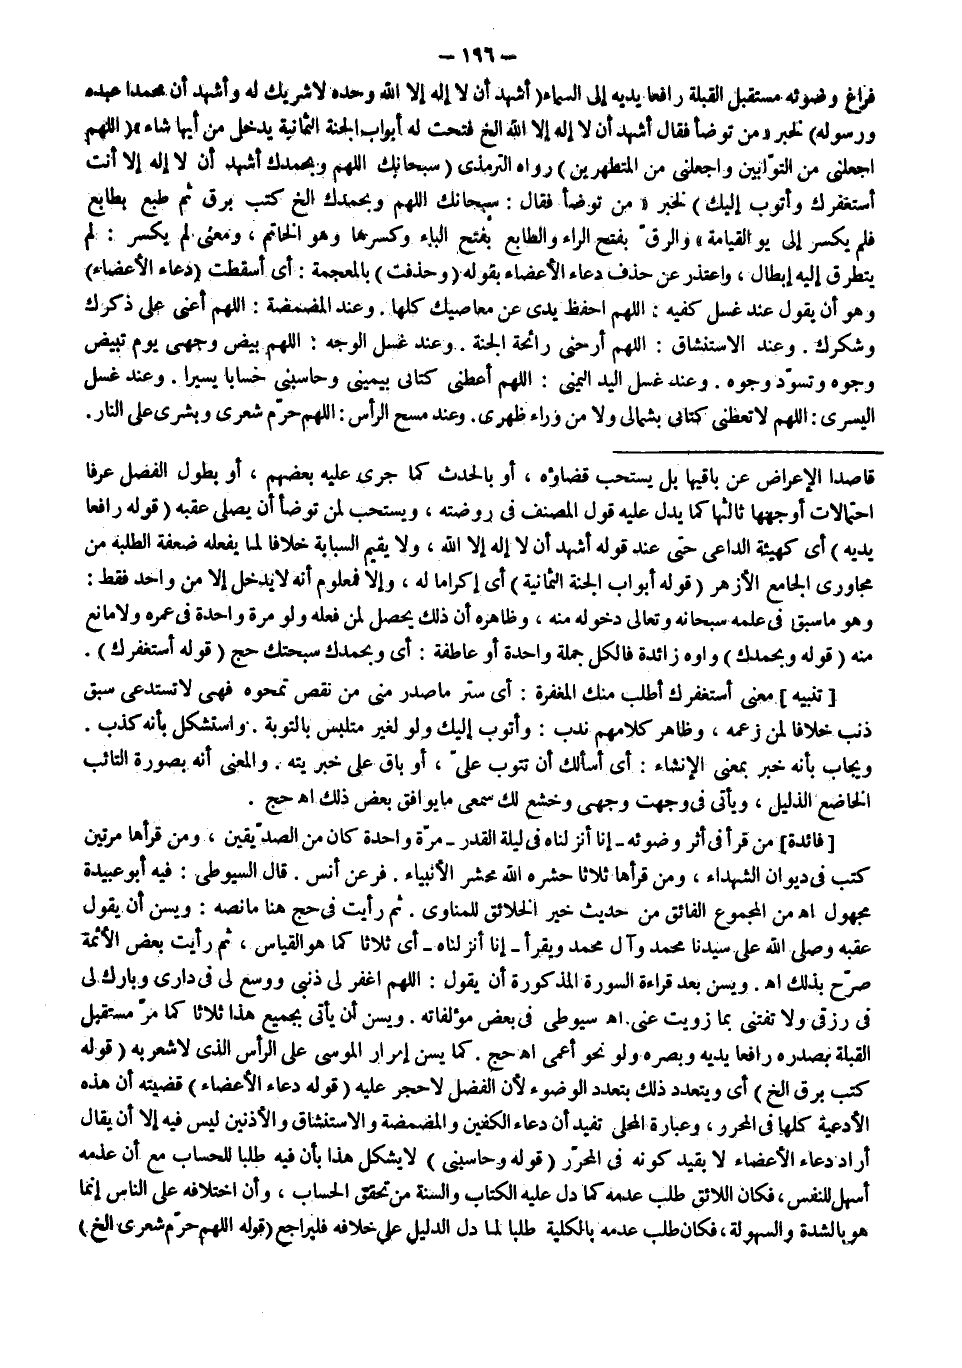 – ١٩٦ –
فراغ وضوئه مستقبل القبلة رافعا يديه إلى السماء ( أشهد أن لا إله إلا الله وحده لا شريك له وأشهد أن محمدا عبده
ورسوله) لخبر «من توضأ فقال أشهد أن لا إله إلا الله الخ فتحت له أبواب الجنة الثمانية يدخل من أيها شاء» ( اللهم
اجعلنى من التوّابين واجعلنى من المتطهرين ) رواه الترمذى ( سبحانك اللهم وبحمدك أشهد أن لا إله إلا أنت
أستغفرك وأتوب إليك ) لخبر « من توضأ فقال : سبحانك اللهم وبحمدك الخ كتب برق ثم طبع بطابع
فلم يكسر إلى يو القيامة » والرقّ بفتح الراء والطابع بفتح الباء وكسرها وهو الخاتم ، ومعنى لم يكسر : لم
يتطرق إليه إبطال ، واعتذر عن حذف دعاء الأعضاء بقوله ( وحذفت ) بالمعجمة : أى أسقطت (دعاء الأعضاء)
وهو أن يقول عند غسل كفيه : اللهم احفظ يدى عن معاصيك كلها . وعند المضمضة : اللهم أعنى على ذكرك
وشكرك . وعند الاستنشاق : اللهم أرحنى رائحة الجنة . وعند غسل الوجه : اللهم بيض وجهى يوم تبيض
وجوه وتسوّد وجوه . وعند غسل اليد اليمنى : اللهم أعطنى كتابى بيمينى وحاسبنى حسابا يسيرا . وعند غسل
اليسرى : اللهم لا تعطنى كتابى بشمالى ولا من وراء ظهرى . وعند مسح الرأس : اللهم حرّم شعرى وبشرى على النار .
قاصدا الإعراض عن باقيها بل يستحب قضاؤه ، أو بالحدث كما جرى عليه بعضهم ، أو بطول الفصل عرفا
احتمالات أوجهها ثالثها كما يدل عليه قول المصنف فى روضته ، ويستحب لمن توضأ أن يصلى عقبه ( قوله رافعا
يديه ) أى كهيئة الداعى حتى عند قوله أشهد أن لا إله إلا الله ، ولا يقيم السبابة خلافا لما يفعله ضعفة الطلبة من
مجاورى الجامع الأزهر ( قوله أبواب الجنة الثمانية ) أى إكراما له ، وإلا فمعلوم أنه لا يدخل إلا من واحد فقط :
وهو ما سبق فى علمه سبحانه وتعالى دخوله منه ، وظاهره أن ذلك يحصل لمن فعله ولو مرة واحدة فى عمره ولا مانع
منه ( قوله وبحمدك ) واوه زائدة فالكل جملة واحدة أو عاطفة : أى وبحمدك سبحتك حج ( قوله أستغفرك ) .
[ تنبيه ] معنى أستغفرك أطلب منك المغفرة : أى ستر ما صدر منى من نقص تمحوه فهى لا تستدعى سبق
ذنب خلافا لمن زعمه ، وظاهر كلامهم ندب : وأتوب إليك ولو لغير متلبس بالتوبة . واستشكل بأنه كذب .
ويجاب بأنه خبر بمعنى الإنشاء : أى أسألك أن تتوب علىّ ، أو باق على خبريته . والمعنى أنه بصورة التائب
الخاضع الذليل ، ويأتى فى وجهت وجهى وخشع لك سمعى ما يوافق بعض ذلك اه حج .
[ فائدة] من قرأ فى أثر وضوئه ـ إنا أنزلناه فى ليلة القدر ـ مرّة واحدة كان من الصدّيقين ، ومن قرأها مرتين
كتب فى ديوان الشهداء ، ومن قرأها ثلاثا حشره الله محشر الأنبياء . فر عن أنس . قال السيوطى : فيه أبو عبيدة
مجهول اه من المجموع الفائق من حديث خير الخلائق للمناوى . ثم رأيت فى حج هنا ما نصه : ويسن أن يقول
عقبه وصلى الله على سيدنا محمد وآل محمد ويقرأ ـ إنا أنزلناه ـ أى ثلاثا كما هو القياس ، ثم رأيت بعض الأئمة
صرّح بذلك اه . ويسن بعد قراءة السورة المذكورة أن يقول : اللهم اغفر لى ذنبى ووسع لى فى دارى وبارك لى
فى رزقى ولا تفتنى بما زويت عنى اه سيوطى فى بعض مؤلفاته . ويسن أن يأتى بجميع هذا ثلاثا كما مرّ مستقبل
القبلة بصدره رافعا يديه وبصره ولو نحو أعمى اه حج . كما يسن إمرار الموسى على الرأس الذى لا شعر به ( قوله
كتب برق الخ ) أى ويتعدد ذلك بتعدد الوضوء لأن الفضل لا حجر عليه ( قوله دعاء الأعضاء ) قضيته أن هذه
الأدعية كلها فى المحرر ، وعبارة المحلى تفيد أن دعاء الكفين والمضمضة والاستنشاق والأذنين ليس فيه إلا أن يقال
أراد دعاء الأعضاء لا بقيد كونه فى المحرّر ( قوله وحاسبنى ) لا يشكل هذا بأن فيه طلبا للحساب مع أن عدمه
أسهل للنفس ، فكان اللائق طلب عدمه كما دل عليه الكتاب والسنة من تحقق الحساب ، وأن اختلافه على الناس إنما
هو بالشدة والسهولة ، فكان طلب عدمه بالكلية طلبا لما دل الدليل على خلافه فليراجع ( قوله اللهم حرّم شعرى الخ )